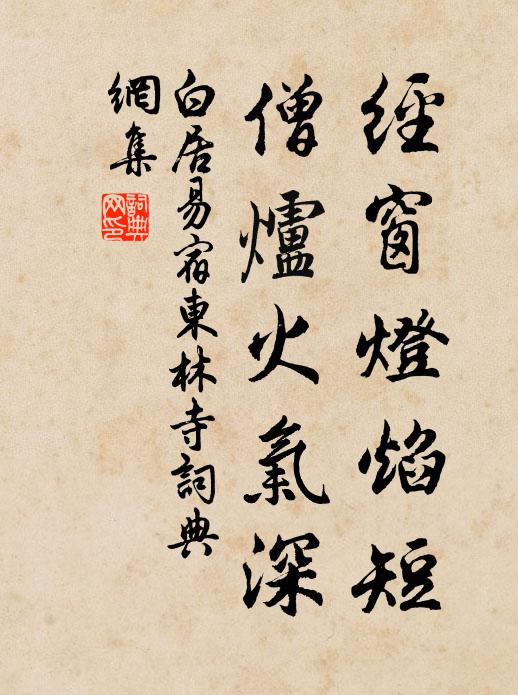 經窗燈焰短
僧爐火氣深
白居易宿東林寺詞典
網集
詞典
網印